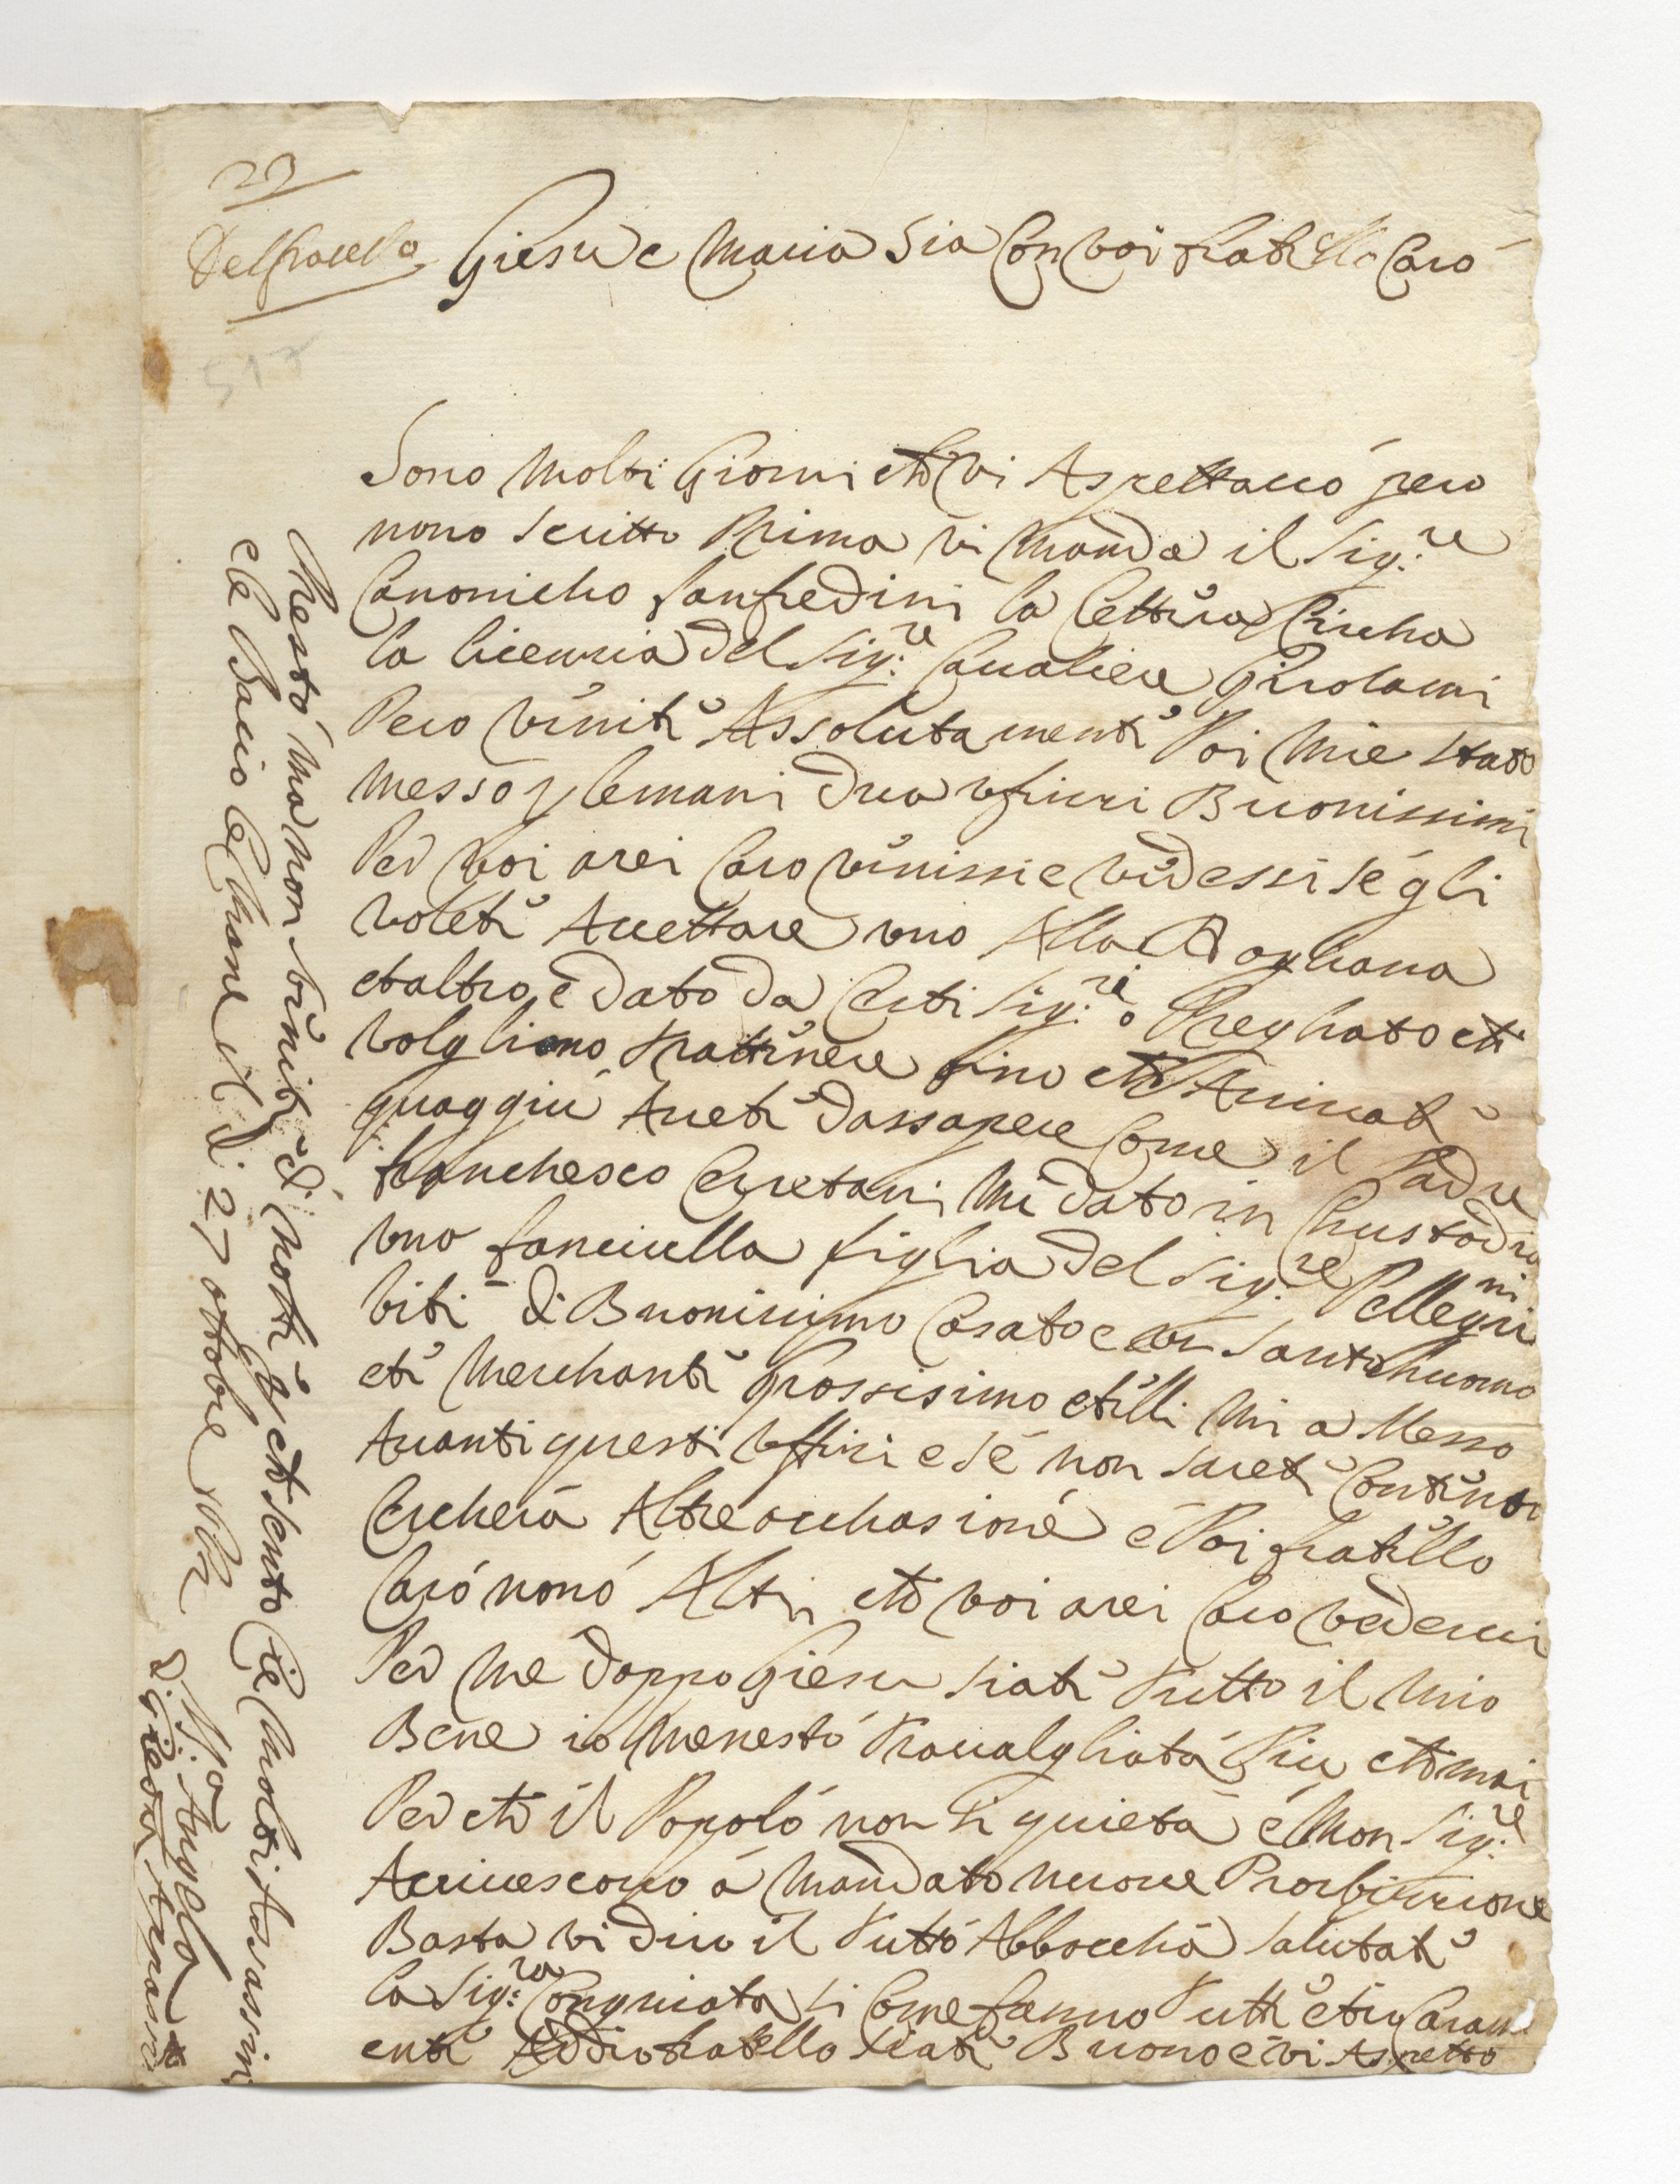 23
Del fratello
Giesu e Maria Sia Con voi fratello Caro
517
Sono Molti Giorni che vi Aspettavo pero
nono scritto Prima vi Manda il Sig:re
Canonicho Panfredini la lettera Circha
la licenzia del Sig:re Cavaliere Girolami
Pero venite Assolutamente Poi Mie stato
Messo p le mani dua ufizzi Buonissimi
Per voi arei Caro venissi e vedessi sé gli
volete Accettare uno Alla
et altro é dato da Certi Sig:ri o Preghato che
volgliono trattenere fino che Arrivate
quaggiu Avete dassapere Come il Padre
franchesco Ceretani Mi dato in Chustodia
una fanciulla figlia del Sig:re Pellegrini
biti di Buonissimo Casato e un Santo huomo
et é Merchante Grossisimo et elli Mi a Messo
Avanti questi uffizi e sé non sarete Contento
Cercherá Altre occhasioné é Poi fratello
Caró nonó Altri ché voi arei Caro vedervi
Per Me doppo Giesu siate tutto il Mio
Bene io Menestó travalgliatá Piu che mai
Per ché il Popoló non si quieta é Mon Sig:re
Arcivescovo á Mandato nuove Proibizzione
Basta vi dico il tuttó Abbocchá Salutate
la Sig:ra Congniata si Come fanno tutte
ente Addio fratello state Buono e vi Aspetto
Presto Ma non venite di notte che sento Ce Molti Assassini
e le Bacio le Mane il di 27 ottobre
D. V. S.